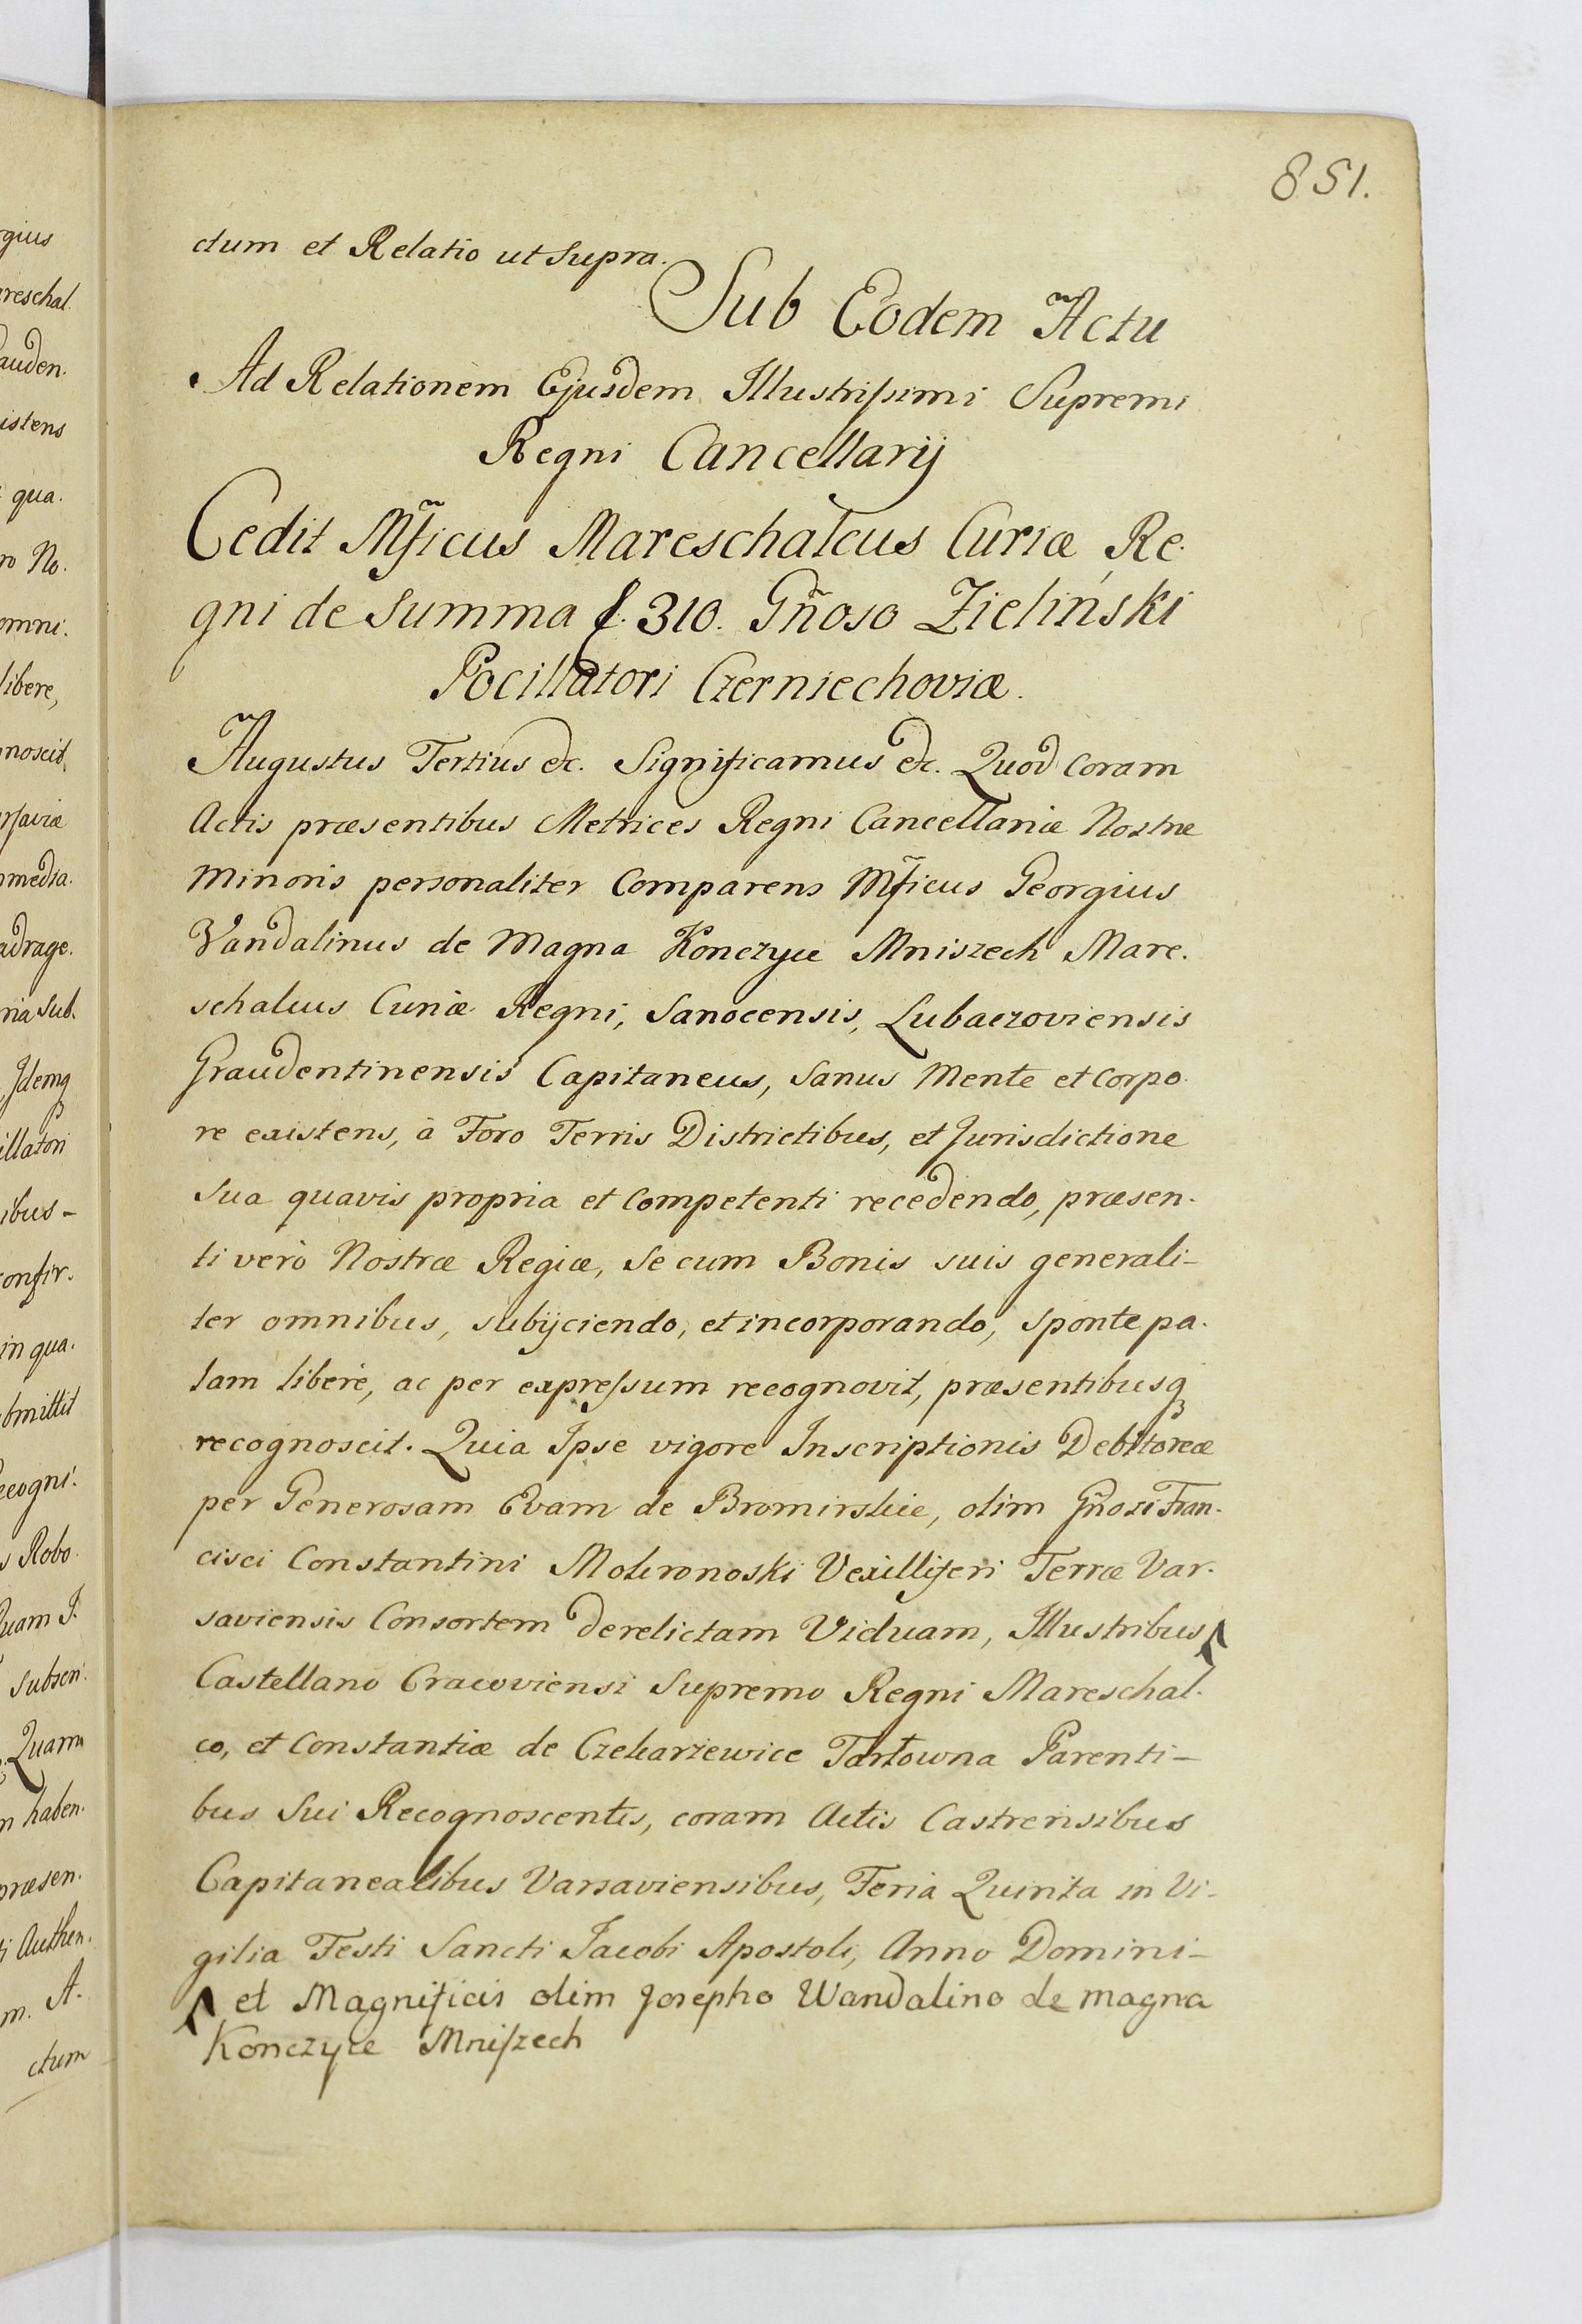 851.
ctum et Relatio ut Supra.
Sub Eodem Actu
Ad Relationem Ejusdem Illustriſsimi Supremi
Regni Cancellarij
Cedit Mficus Mareschalcus Curiæ Re-
gni de Summa f. 310. Gñoso Zieliński
Pocillatori Czerniechoviæ.
Augustus Tertius etc. Significamus etc. Quod Coram
Actis præsentibus Metrices Regni Cancellariæ Nostræ
Minoris personaliter Comparens Mficus Georgius
Vandalinus de Magna Konczyce Mniszech Mare-
schalcus Curiæ Regni, Sanocensis, Lubaczoviensis
Graudentinensis Capitaneus, Sanus Mente et Corpo-
re existens, à Foro Terris Districtibus, et Jurisdictione
Sua quavis propria et Competenti recedendo, præsen-
ti verò Nostræ Regiæ, Se cum Bonis suis generali-
ter omnibus, subijciendo, et incorporando, sponte pa-
lam liberè, ac per expreſsum recognovit, præsentibusq
recognoscit. Quia Ipse vigore Inscriptionis Debitoreæ
per Generosam Evam de Bromirskie, olim Gñosi Fran-
cisci Constantini Mokronoski Vexilliferi Terræ Var-
saviensis Consortem derelictam Viduam, Illustribus
Castellano Cracoviensi Supremo Regni Mareschal-
co, et Constantiæ de Czekarzewice Tarłowna Parenti-
bus Sui Recognoscentis, coram Actis Castrensibus
Capitanealibus Varsaviensibus, Feria Quinta in Vi-
gilia Festi Sancti Jacobi Apostoli, Anno Domini-
et Magnificis olim Josepho Wandalino de magna
Konczyce Mniſzech